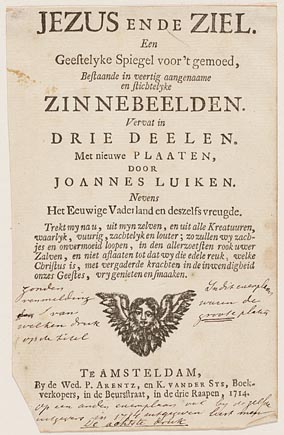 JEZUS ENDE ZIEL.
Een
Geestelyke Spiegel voor 't gemoed,
Bestaande in veertig aangenaame
en stichtelyke
ZINNEBEELDEN.
Vervat in
DRIE DEELEN.
Met nieuwe PLAATEN,
DOOR
JOANNES LUIKEN.
Nevens
Het Eeuwige Vaderland en deszelfs vreugde.
Trekt my na u, uit myn zelven, en uit alle Kreatuuren,
waarlyk, vuurig, zachtelyk en louter; zo zullen wy zach-
jes en onvermoeid loopen, in den allerzoetsten rook uwer
Zalven, en niet aflaaten tot dat wy die edele reuk, welke
Christus is, met vergaderde krachten in de inwendigheid
onzes Geestes, vry genieten en smaaken.
zonder
vermelding
van
welken druk
op de titel
In dit exemplaar
waren de
groote platen
Te AMSTELDAM,
By de Wed. P. ARENTZ, en K. VANDER SYS, Boek-
verkopers, in de Beursstraat, in de drie Raapen, 1714.
Op een ander exemplaar
in 1714 uitgegeven
de achtste druk